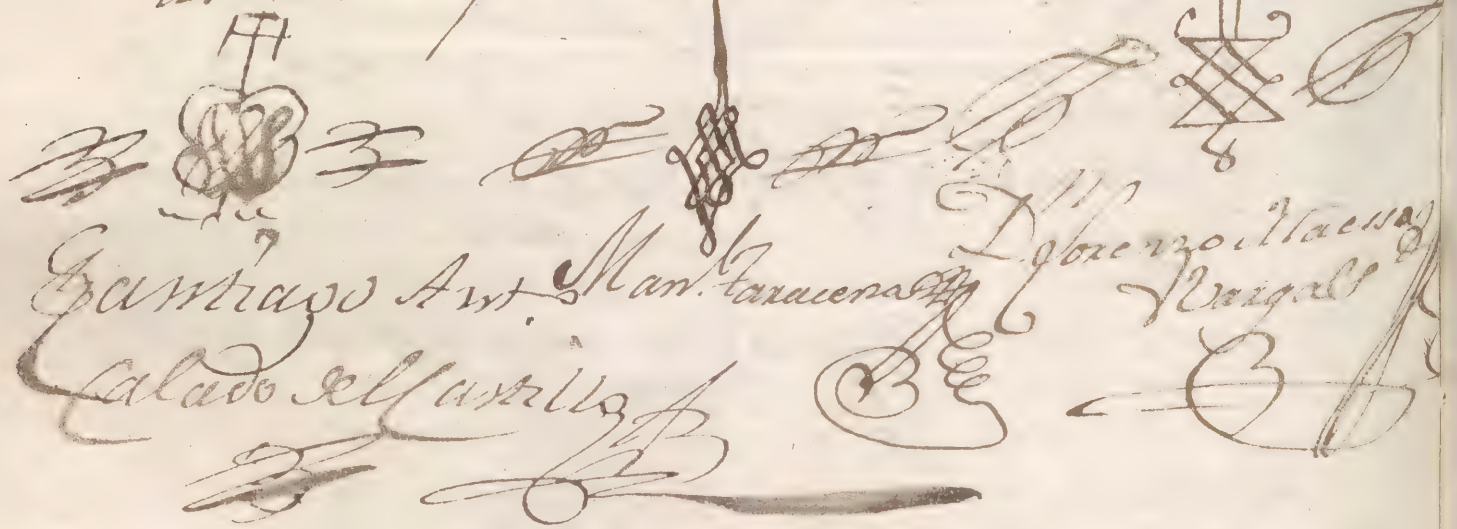 Santiago Ant.º
Calado del Castillo
Man.l Taracena
D.n Lorenzo Maesso
Vargas